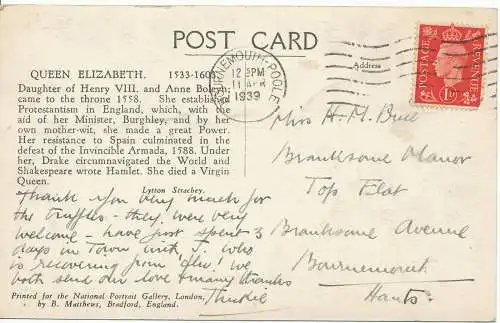 POST CARD
QUEEN ELIZABETH. 1533-1603
Daughter of Henry VIII. and Anne Boleyn;
came to the throne 1558. She established
Protestantism in England, which, with the
aid of her Minister, Burghley, and by her
own mother-wit, she made a great Power.
Her resistance to Spain culminated in the
defeat of the Invincible Armada, 1588. Under
her, Drake circumnavigated the World and
Shakespeare wrote Hamlet. She died a Virgin
Queen.
Lytton Strachey.
Thank you very much for
the truffles - they were very
welcome - have just spent 3
days in Town with J. who
is recovering from 'flu! We
both send our love & many thanks
Printed for the National Portrait Gallery, London,
by B. Matthews, Bradford, England.
BOURNEMOUTH-POOLE
12 PM
11 APR
1939
Address
POSTAGE
REVENUE
1D
Mrs H. M.
Branksome Manor
Top Flat
Branksome Avenue
Bournemouth
Hants.